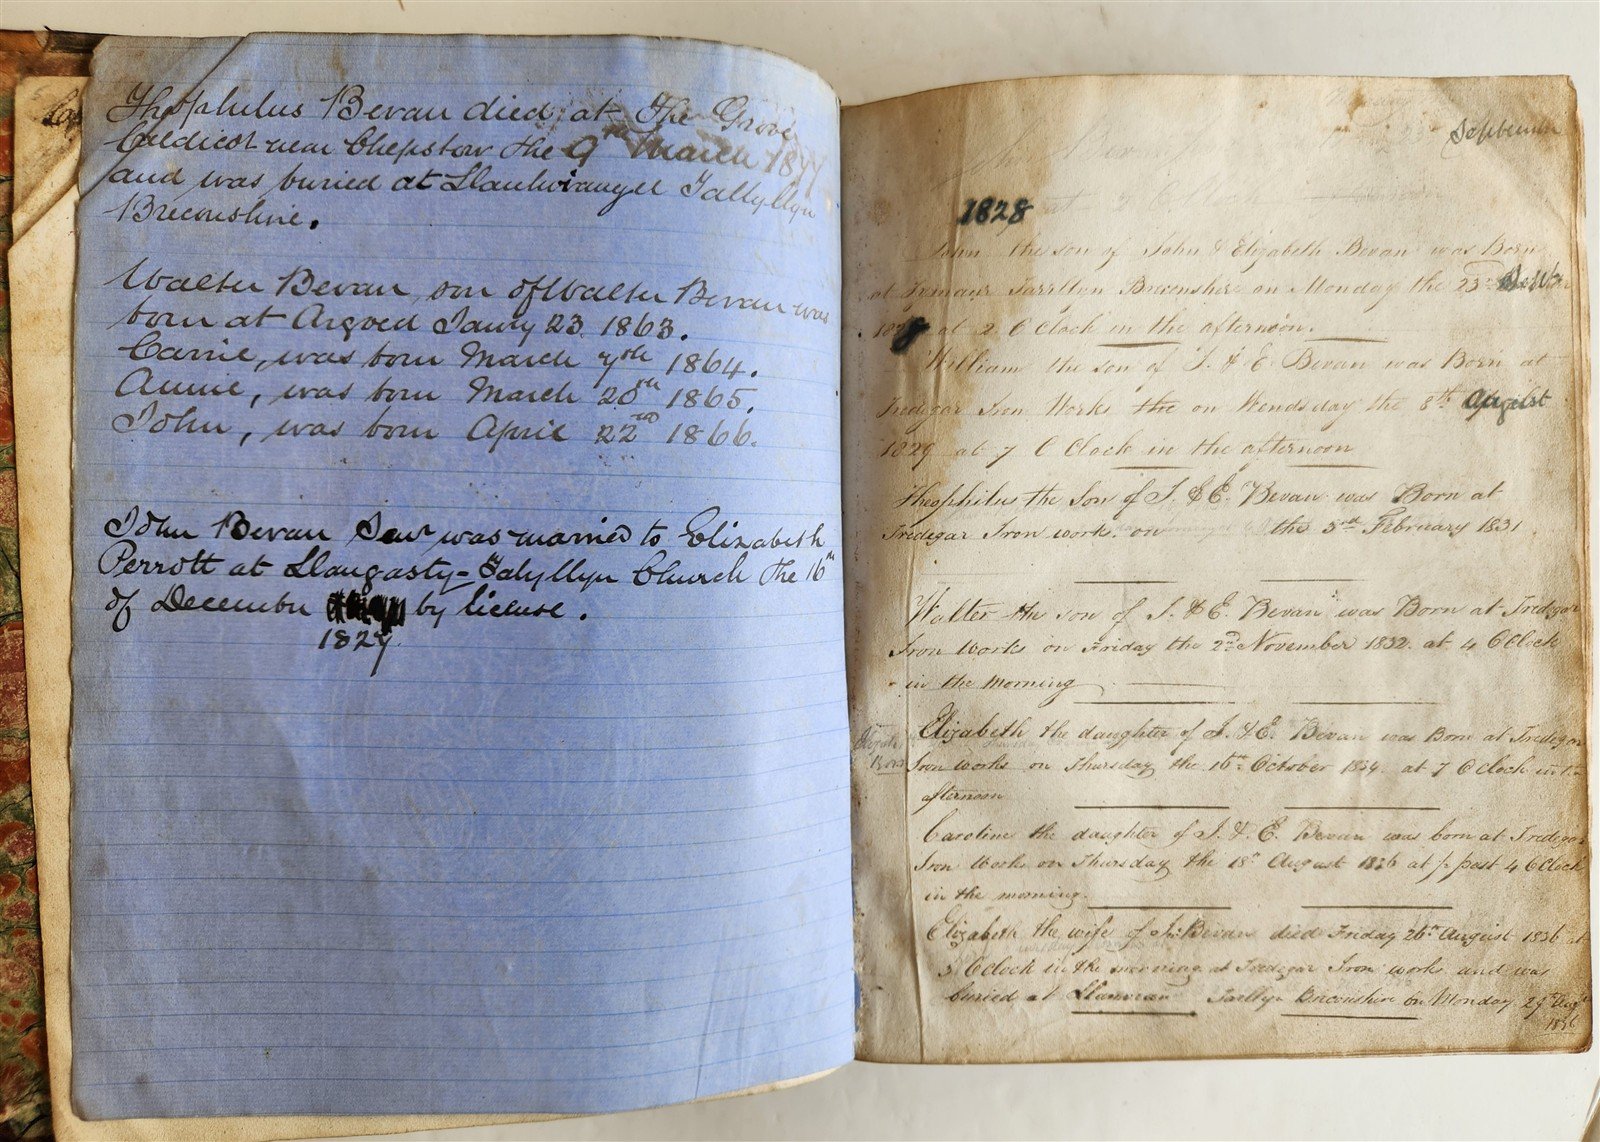 Theophulus Bevan died at The Grove
Caldicot near Chepstow the 9th March 1877
and was buried at Llanhirangel Tallyllyn
Breconshire.
Walter Bevan son of Walter Bevan was
born at Argoed Janry 23. 1863.
Carrie, was born March 7th 1864.
Annie, was born March 20th 1865.
John, was born April 22nd 1866.
John Bevan Senr was married to Elizabeth
Perrott at Llangasty-Talyllyn Church the 16th
of December by license.
1827.
September
1828
John the son of John & Elizabeth Bevan was Born
at Breconshire on Monday the 23rd
182 at 2 O Clock in the afternoon.
William the son of J. & E. Bevan was Born at
Tredegar Iron Works the on Wendsday the 8th
1829 at 7 O Clock in the afternoon
Theophilus the Son of J. & E. Bevan was Born at
Tredegar Iron works. on the 3rd February 1831
Walter the son of J. & E. Bevan was Born at Tredegar
Iron Works on Friday the 2nd November 1832. at 4 OClock
in the Morning
Elizabeth the daughter of J. & E. Bevan was Born at Tredegar
Born
Iron works on Thursday the 16th October 1834. at 7 O Clock in the
afternoon
Caroline the daughter of J. & E. Bevan was born at Tredegar
Iron Works on Thursday the 18th August 1836 at ½ past 4 OClock
in the morning.
Elizabeth the wife of Jn Bevan died Friday 26th August 1836 at
5 OClock in the morning at Tredegar Iron works and was
buried at Breconshire on Monday 29th Augt
1836